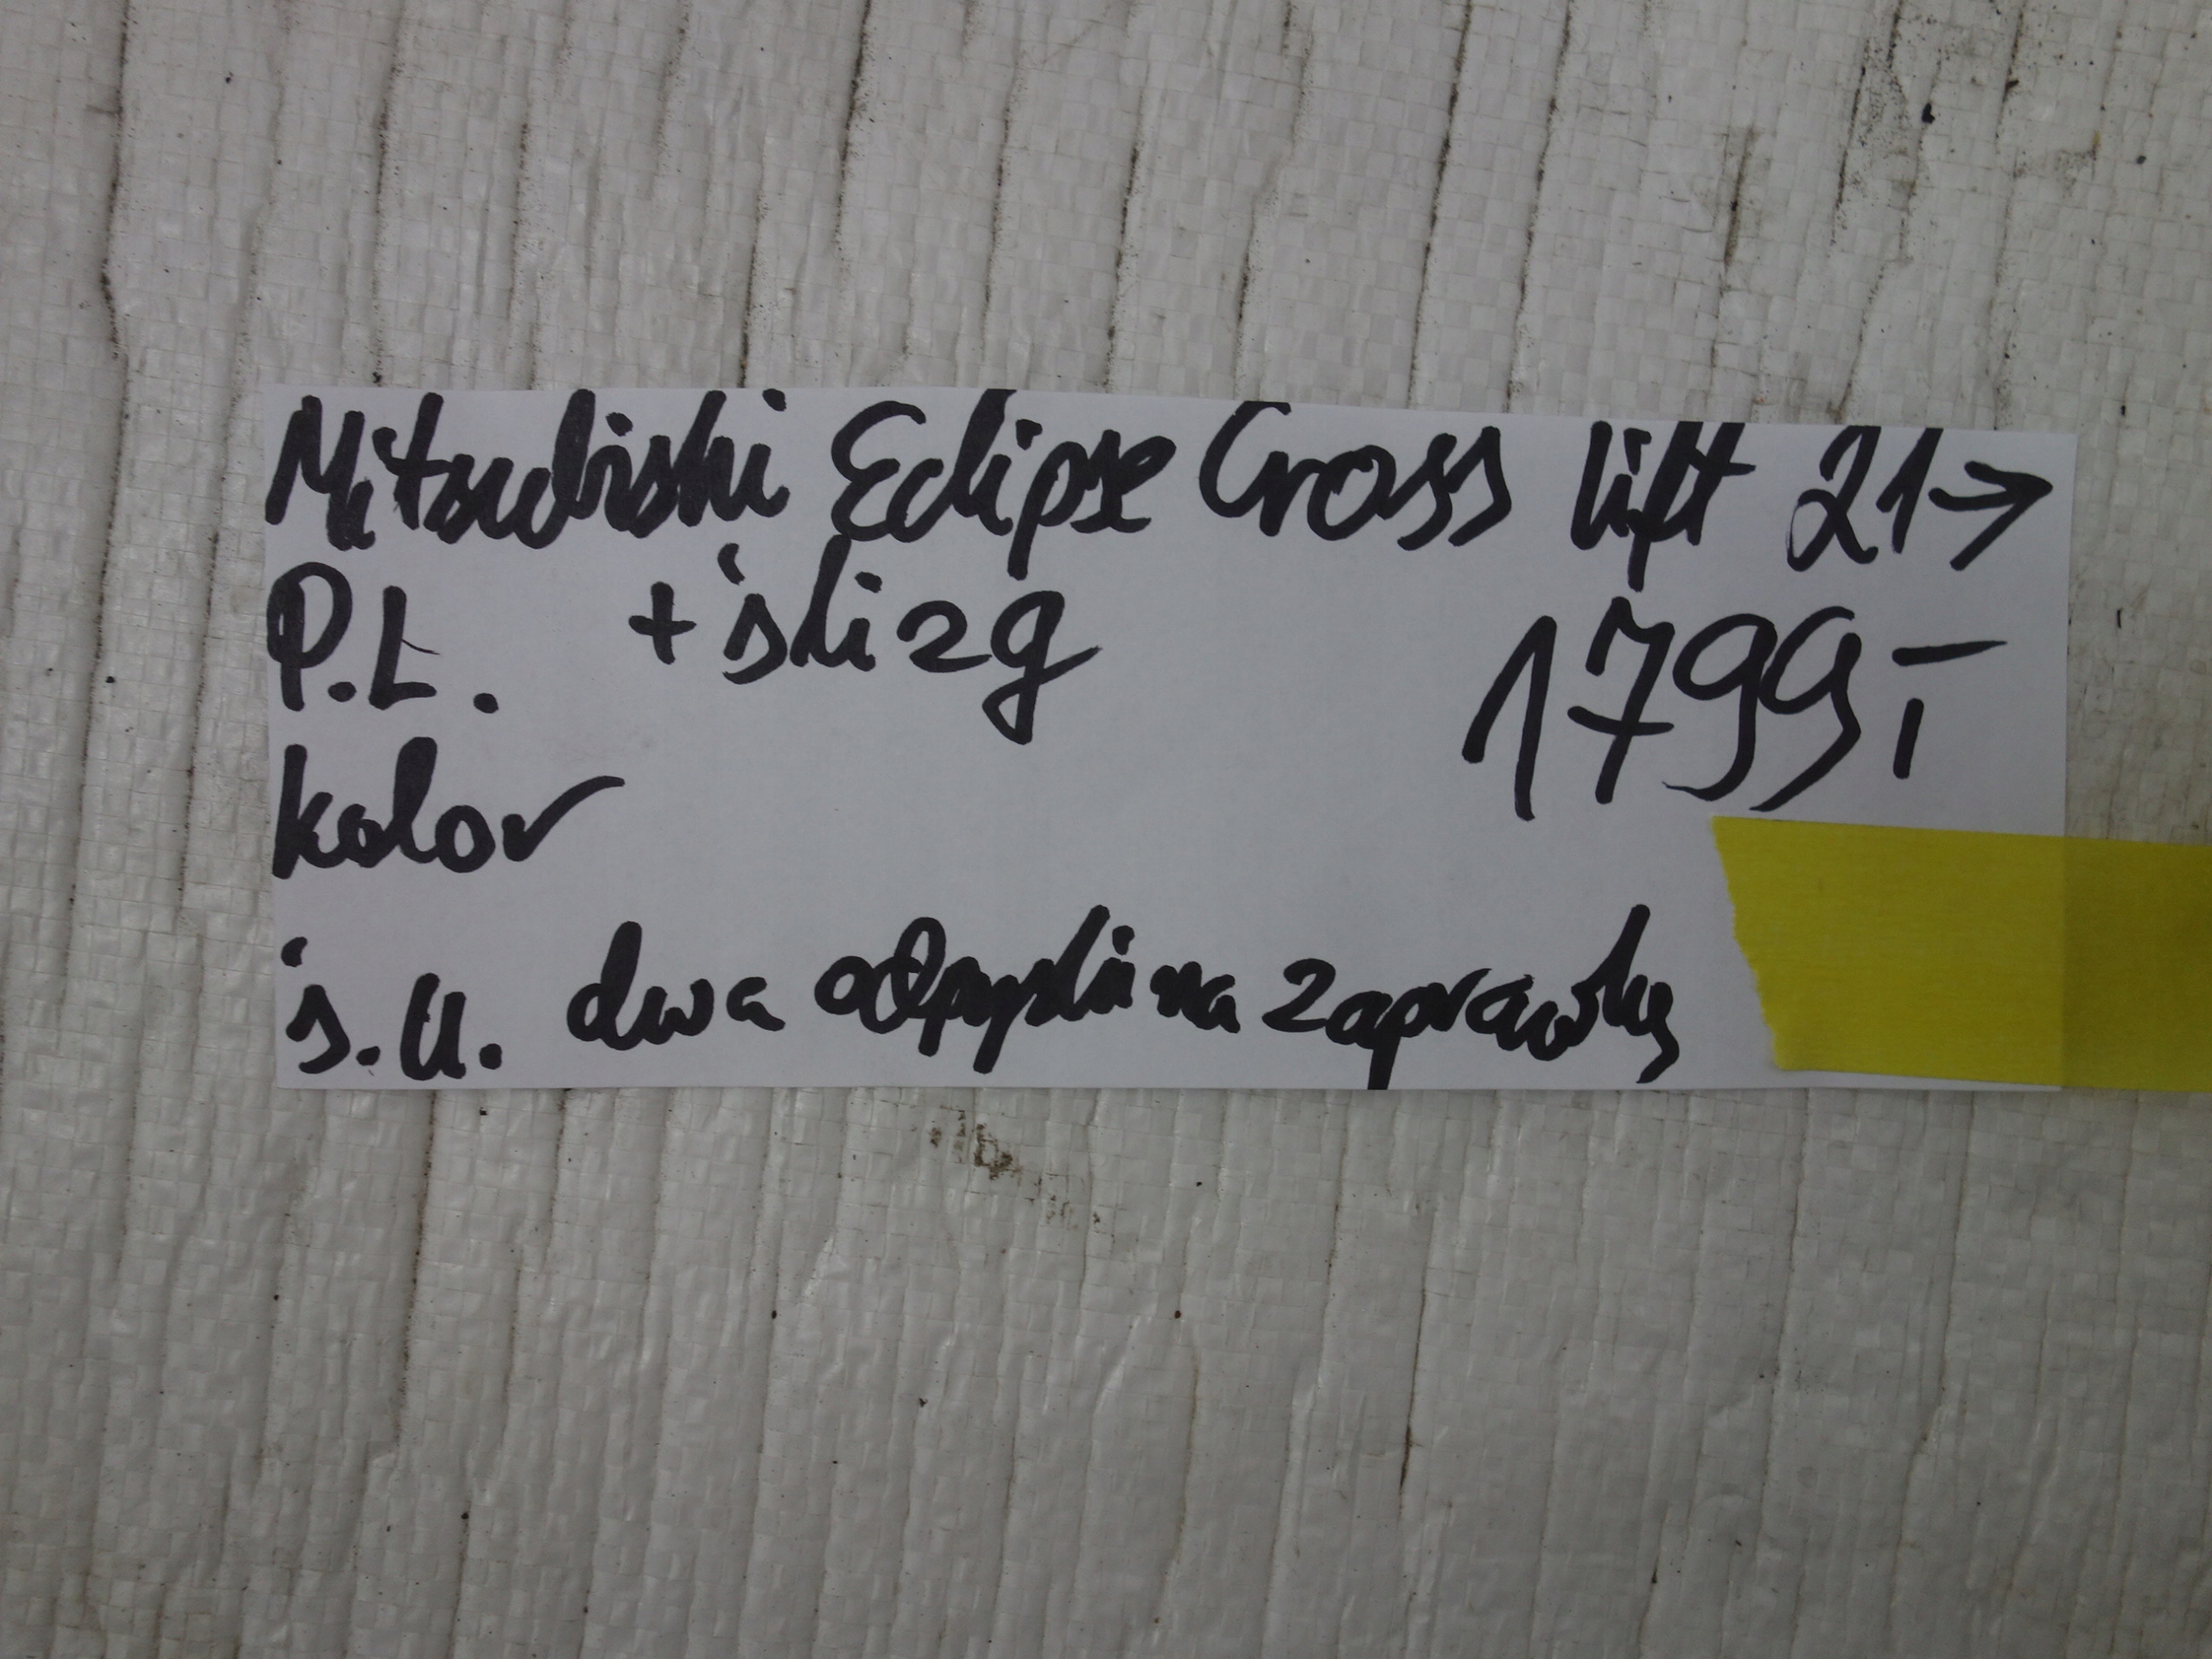 Mitsubishi Eclipse Cross lift 21→
P.L. + ślizg 1799,-
kolor
ś.u. dwa odpryski na zaprawkę